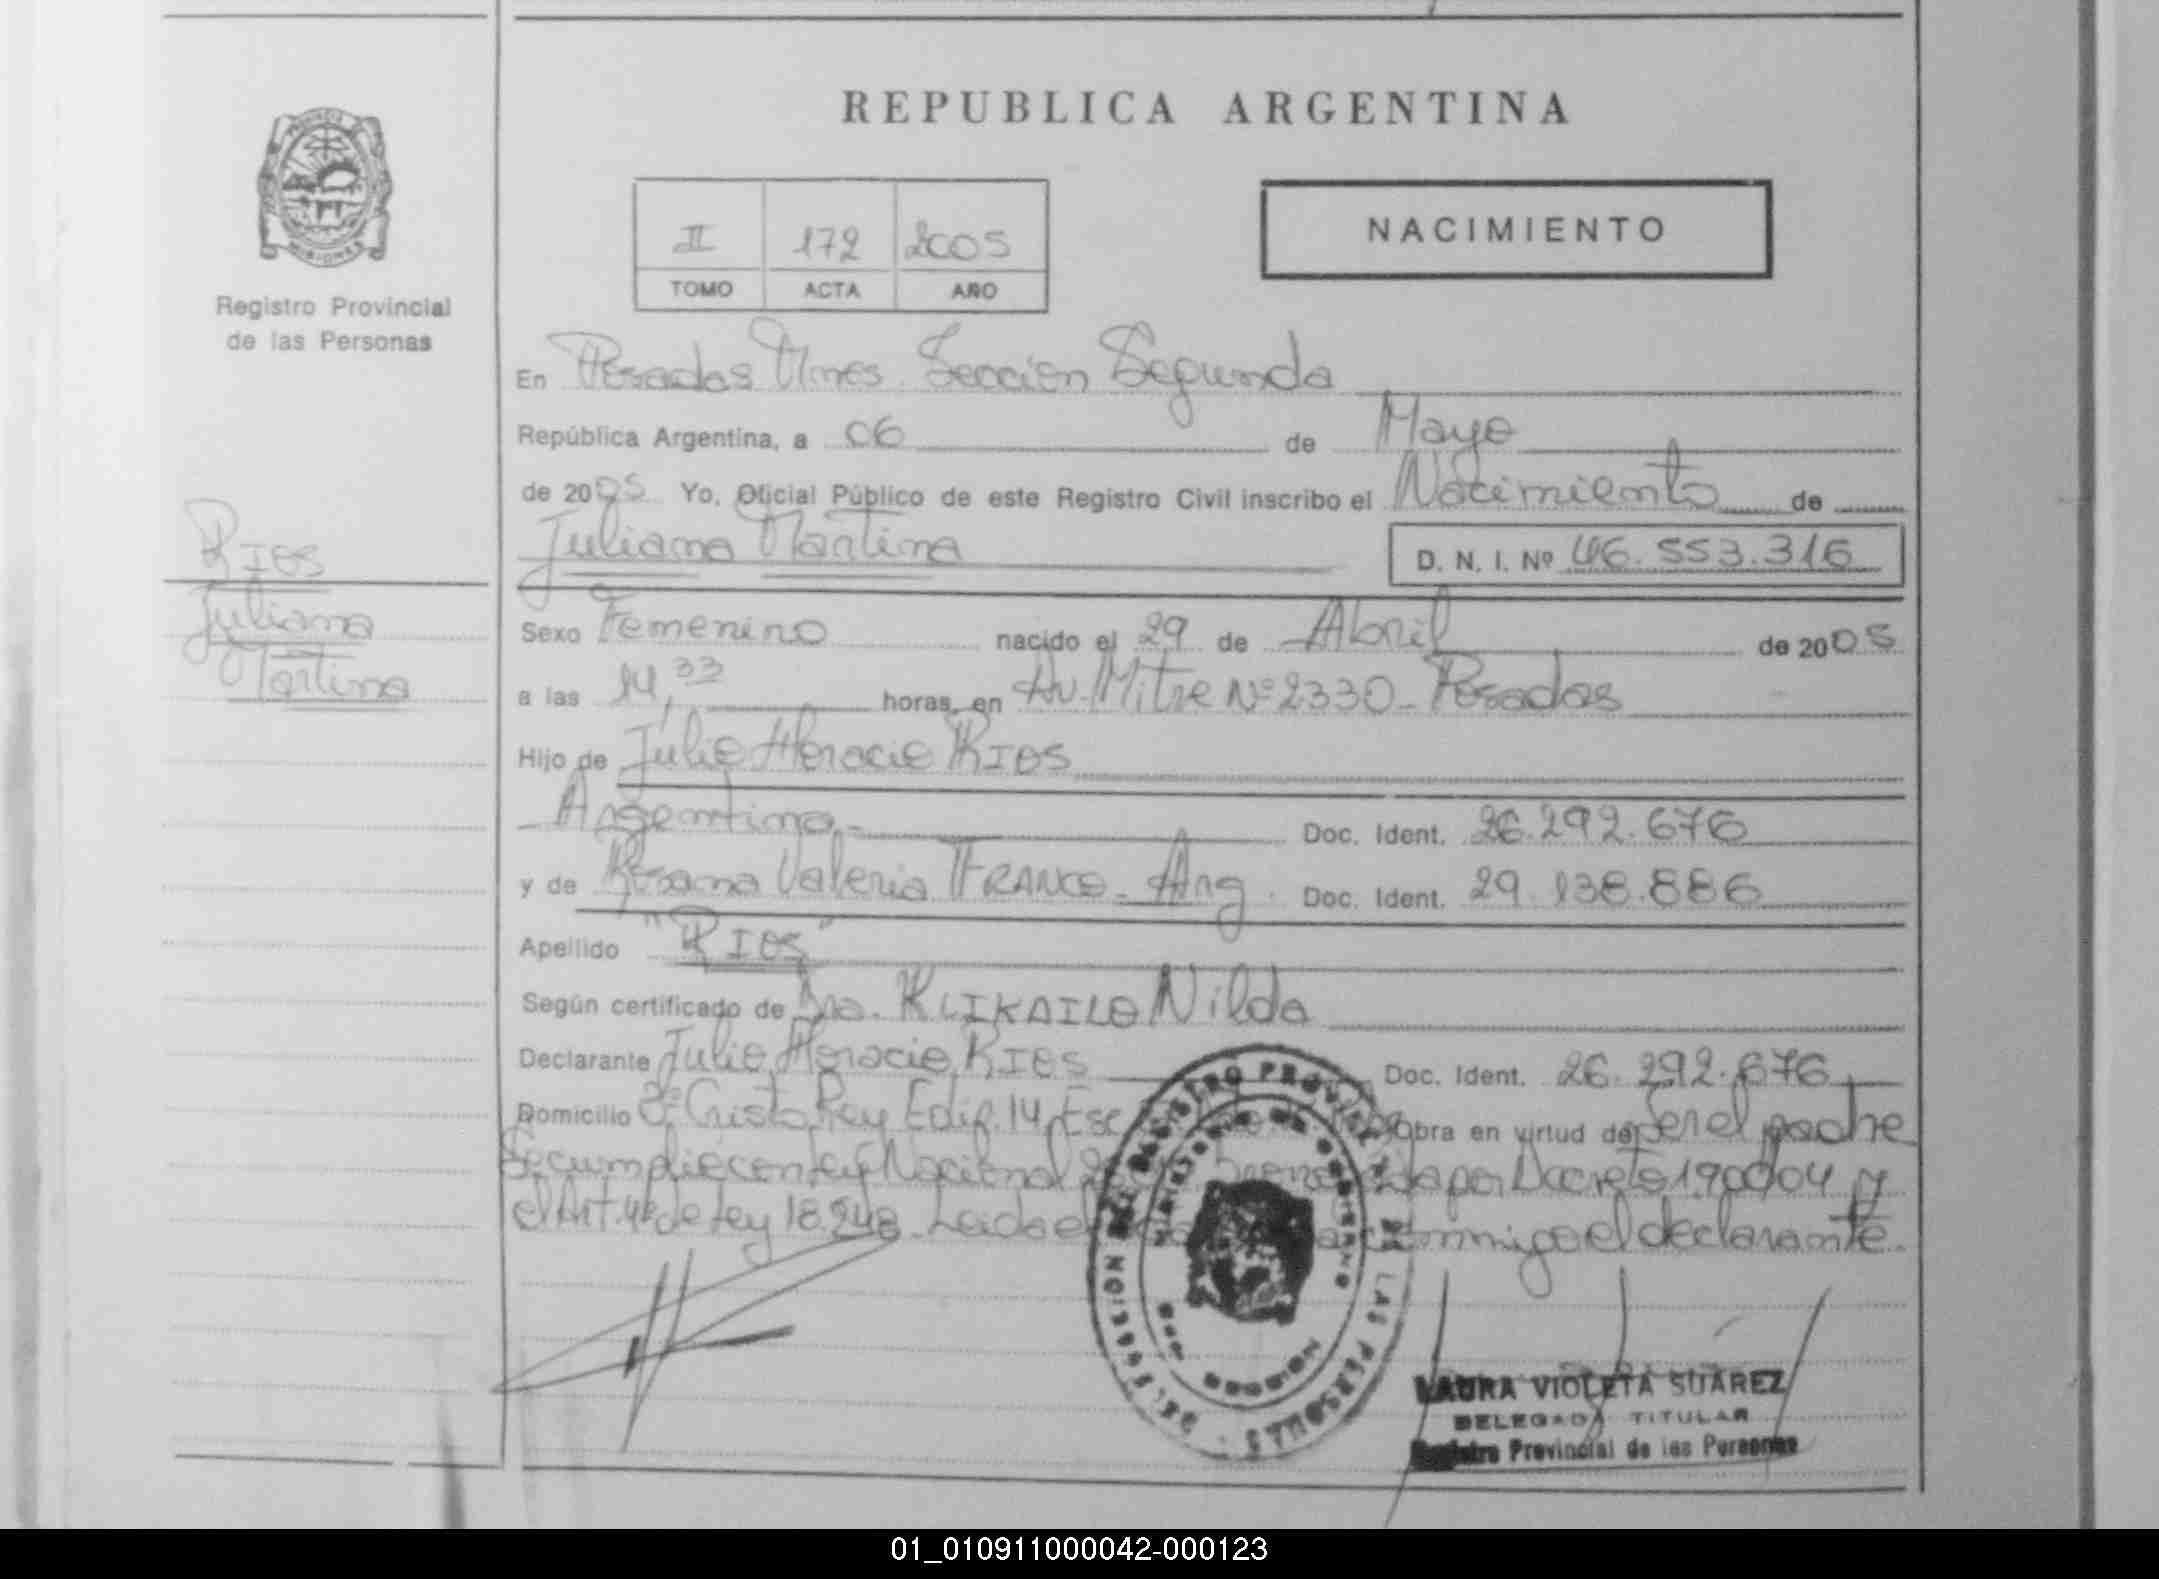 REPUBLICA ARGENTINA
PROVINCIA DE
MISIONES
Registro Provincial
de las Personas
II 172 2005
TOMO ACTA AÑO
NACIMIENTO
En Posadas Mnes. Sección Segunda
República Argentina, a 06 de Mayo
de 2005 Yo, Oficial Público de este Registro Civil inscribo el Nacimiento de
Juliana Martina
D. N. I. Nº 46.553.316
RIOS
Juliana
Martina
Sexo Femenino nacido el 29 de Abril de 2005
a las 14,33 horas, en Av. Mitre Nº 2330 - Posadas
Hijo de Julio Horacio RIOS
Argentino.- Doc. Ident. 26.292.676
y de Rosana Valeria FRANCO - Arg. Doc. Ident. 29.138.886
Apellido "RIOS"
Según certificado de Dra. KLIKAILO Nilda
Declarante Julio Horacio RIOS Doc. Ident. 26.292.676
Domicilio Cristo Rey Edif. 14 Esc obra en virtud de Ser el padre
Se cumplió con Ley Nacional por Decreto 190/04 y
el Art. 4º de Ley 18.248. Leida el conmigo el declarante.
DELEGACION DEL REGISTRO PROVINCIAL DE LAS PERSONAS
MINISTERIO DE GOBIERNO
MISIONES
LAURA VIOLETA SUAREZ
DELEGADA TITULAR
Registro Provincial de las Personas
01_010911000042-000123